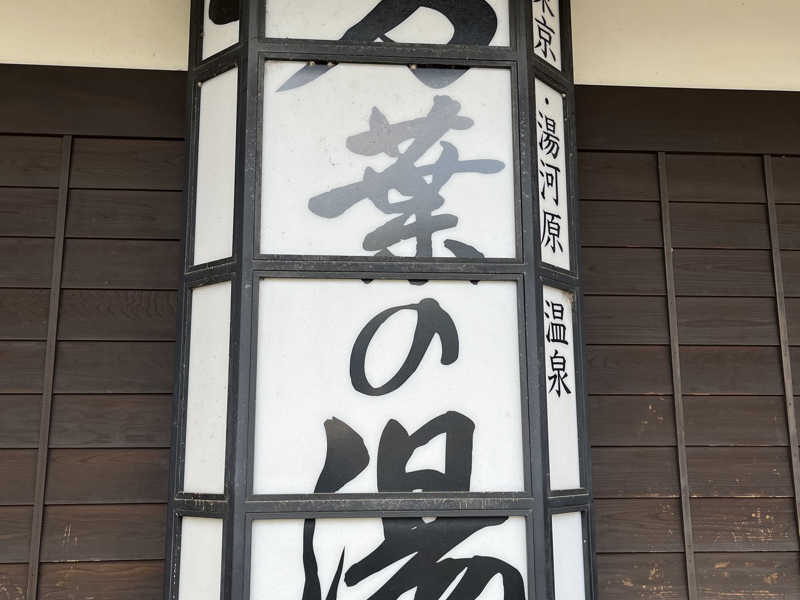 万葉の湯
東京・湯河原
温泉